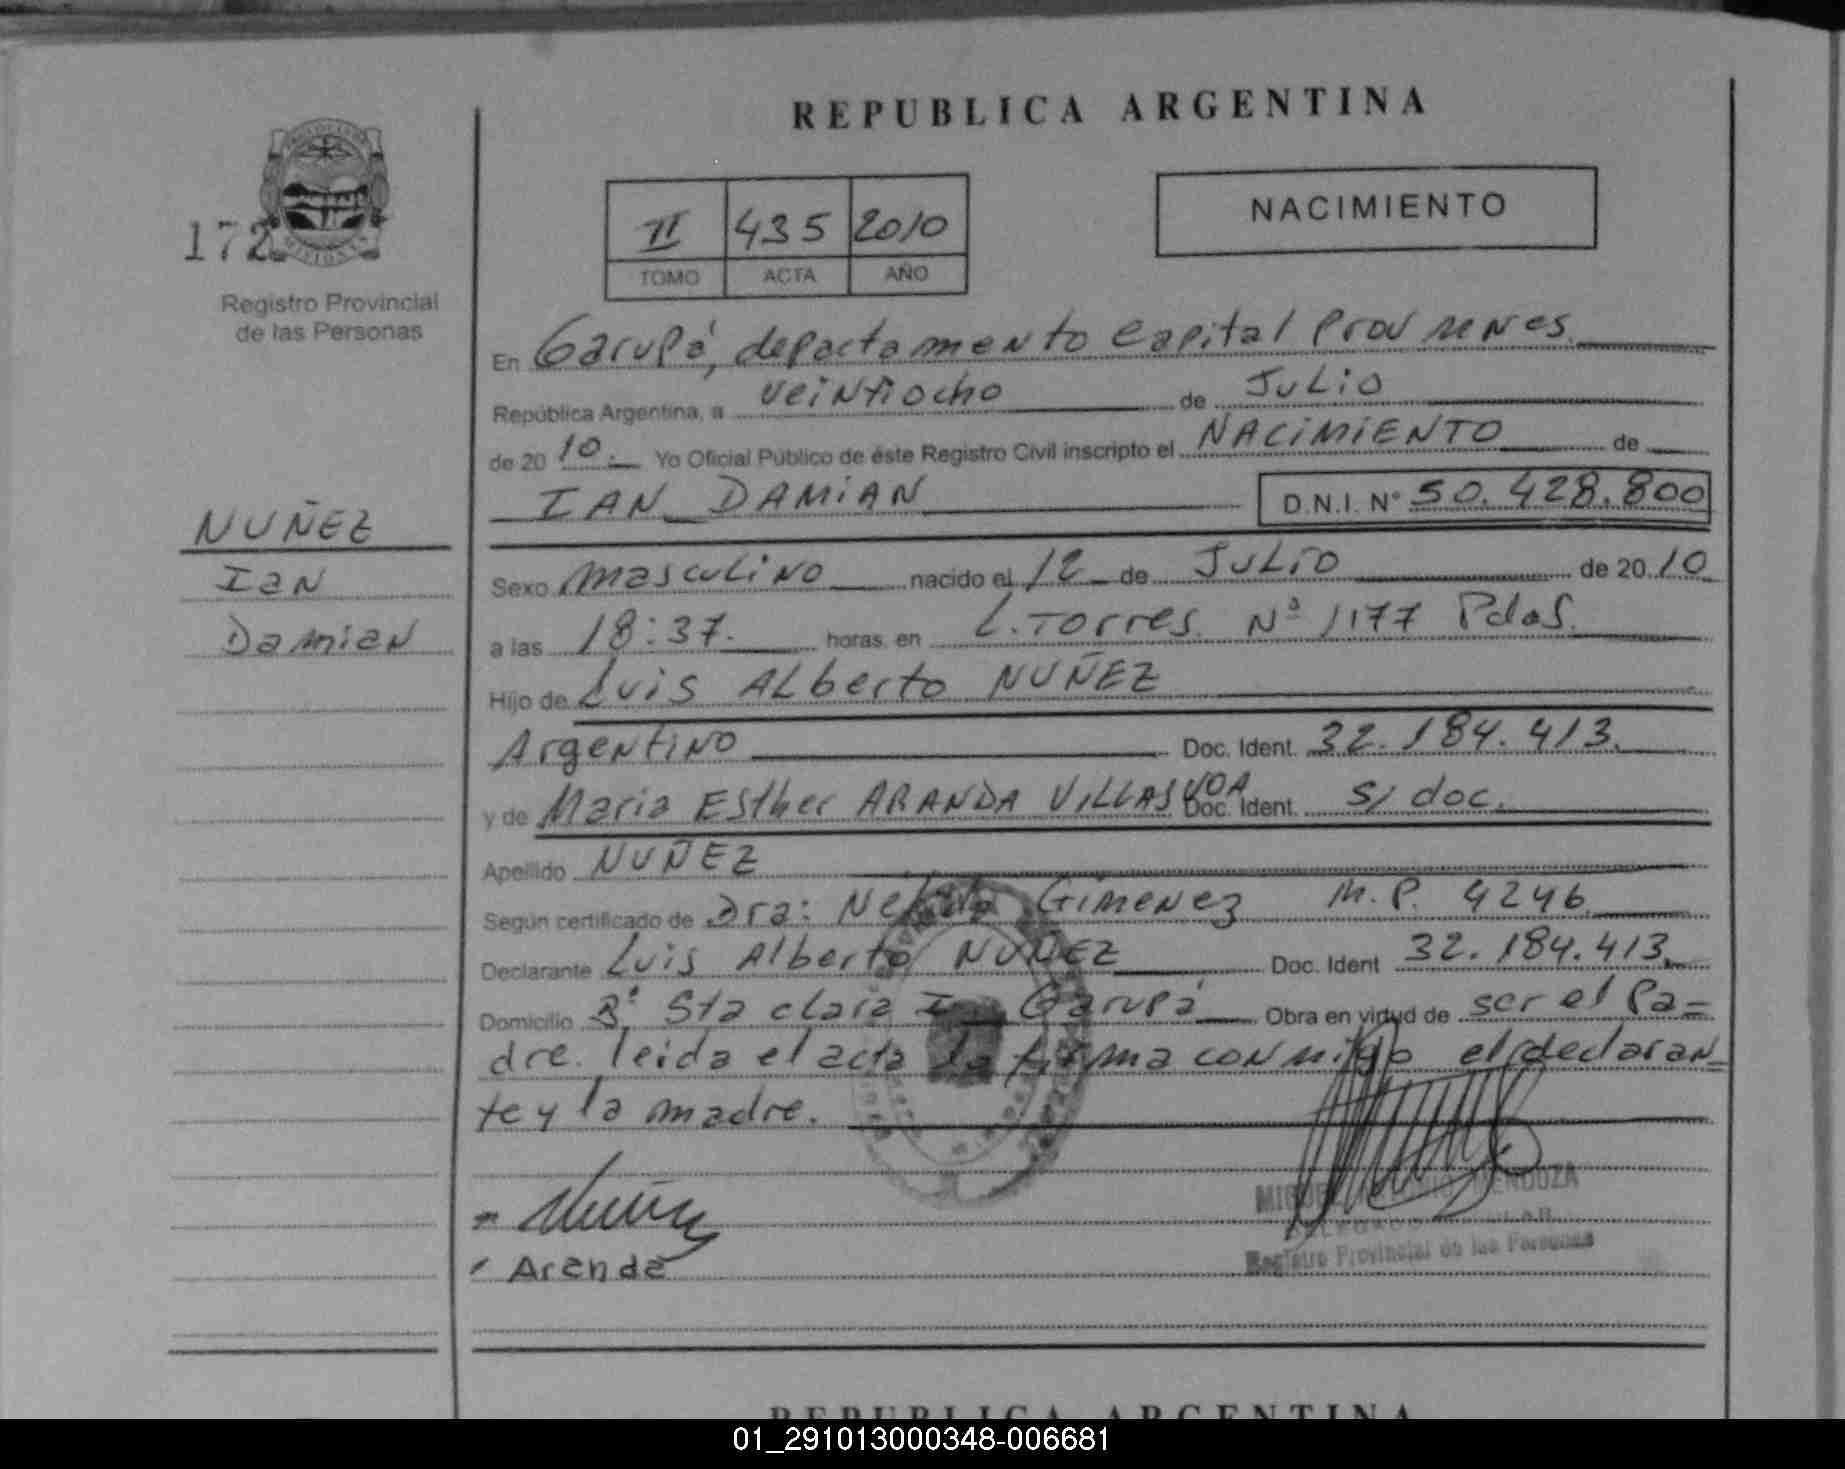 REPUBLICA ARGENTINA
172
MISIONES
Registro Provincial
de las Personas
II 435 2010
TOMO ACTA AÑO
NACIMIENTO
En Garupá, departamento Capital Prov
República Argentina, a veintiocho de Julio
de 2010. Yo Oficial Público de éste Registro Civil inscripto el NACIMIENTO de
IAN DAMIAN D.N.I. N° 50.428.800
NUÑEZ
Ian
Damian
Sexo masculino nacido el 12 de JULIO de 2010
a las 18:37. horas, en L. Torres Nº 1177 Pdas.
Hijo de Luis Alberto NUÑEZ
Argentino Doc. Ident. 32.184.413.
y de Maria Esther ARANDA VILLASVOA Doc. Ident. S/ doc.
Apellido NUÑEZ
Según certificado de Dra: Gimenez M.P. 4246
Declarante Luis Alberto NUÑEZ Doc. Ident 32.184.413.
Domicilio Bº Sta clara I Garupá Obra en virtud de ser el Pa=
dre. leida el acta la firma conmigo el declaran=
te y la madre.
Nuñez
Aranda
MIGUEL ANTONIO MENDOZA
Registro Provincial de las Personas
REPUBLICA ARGENTINA
01_291013000348-006681